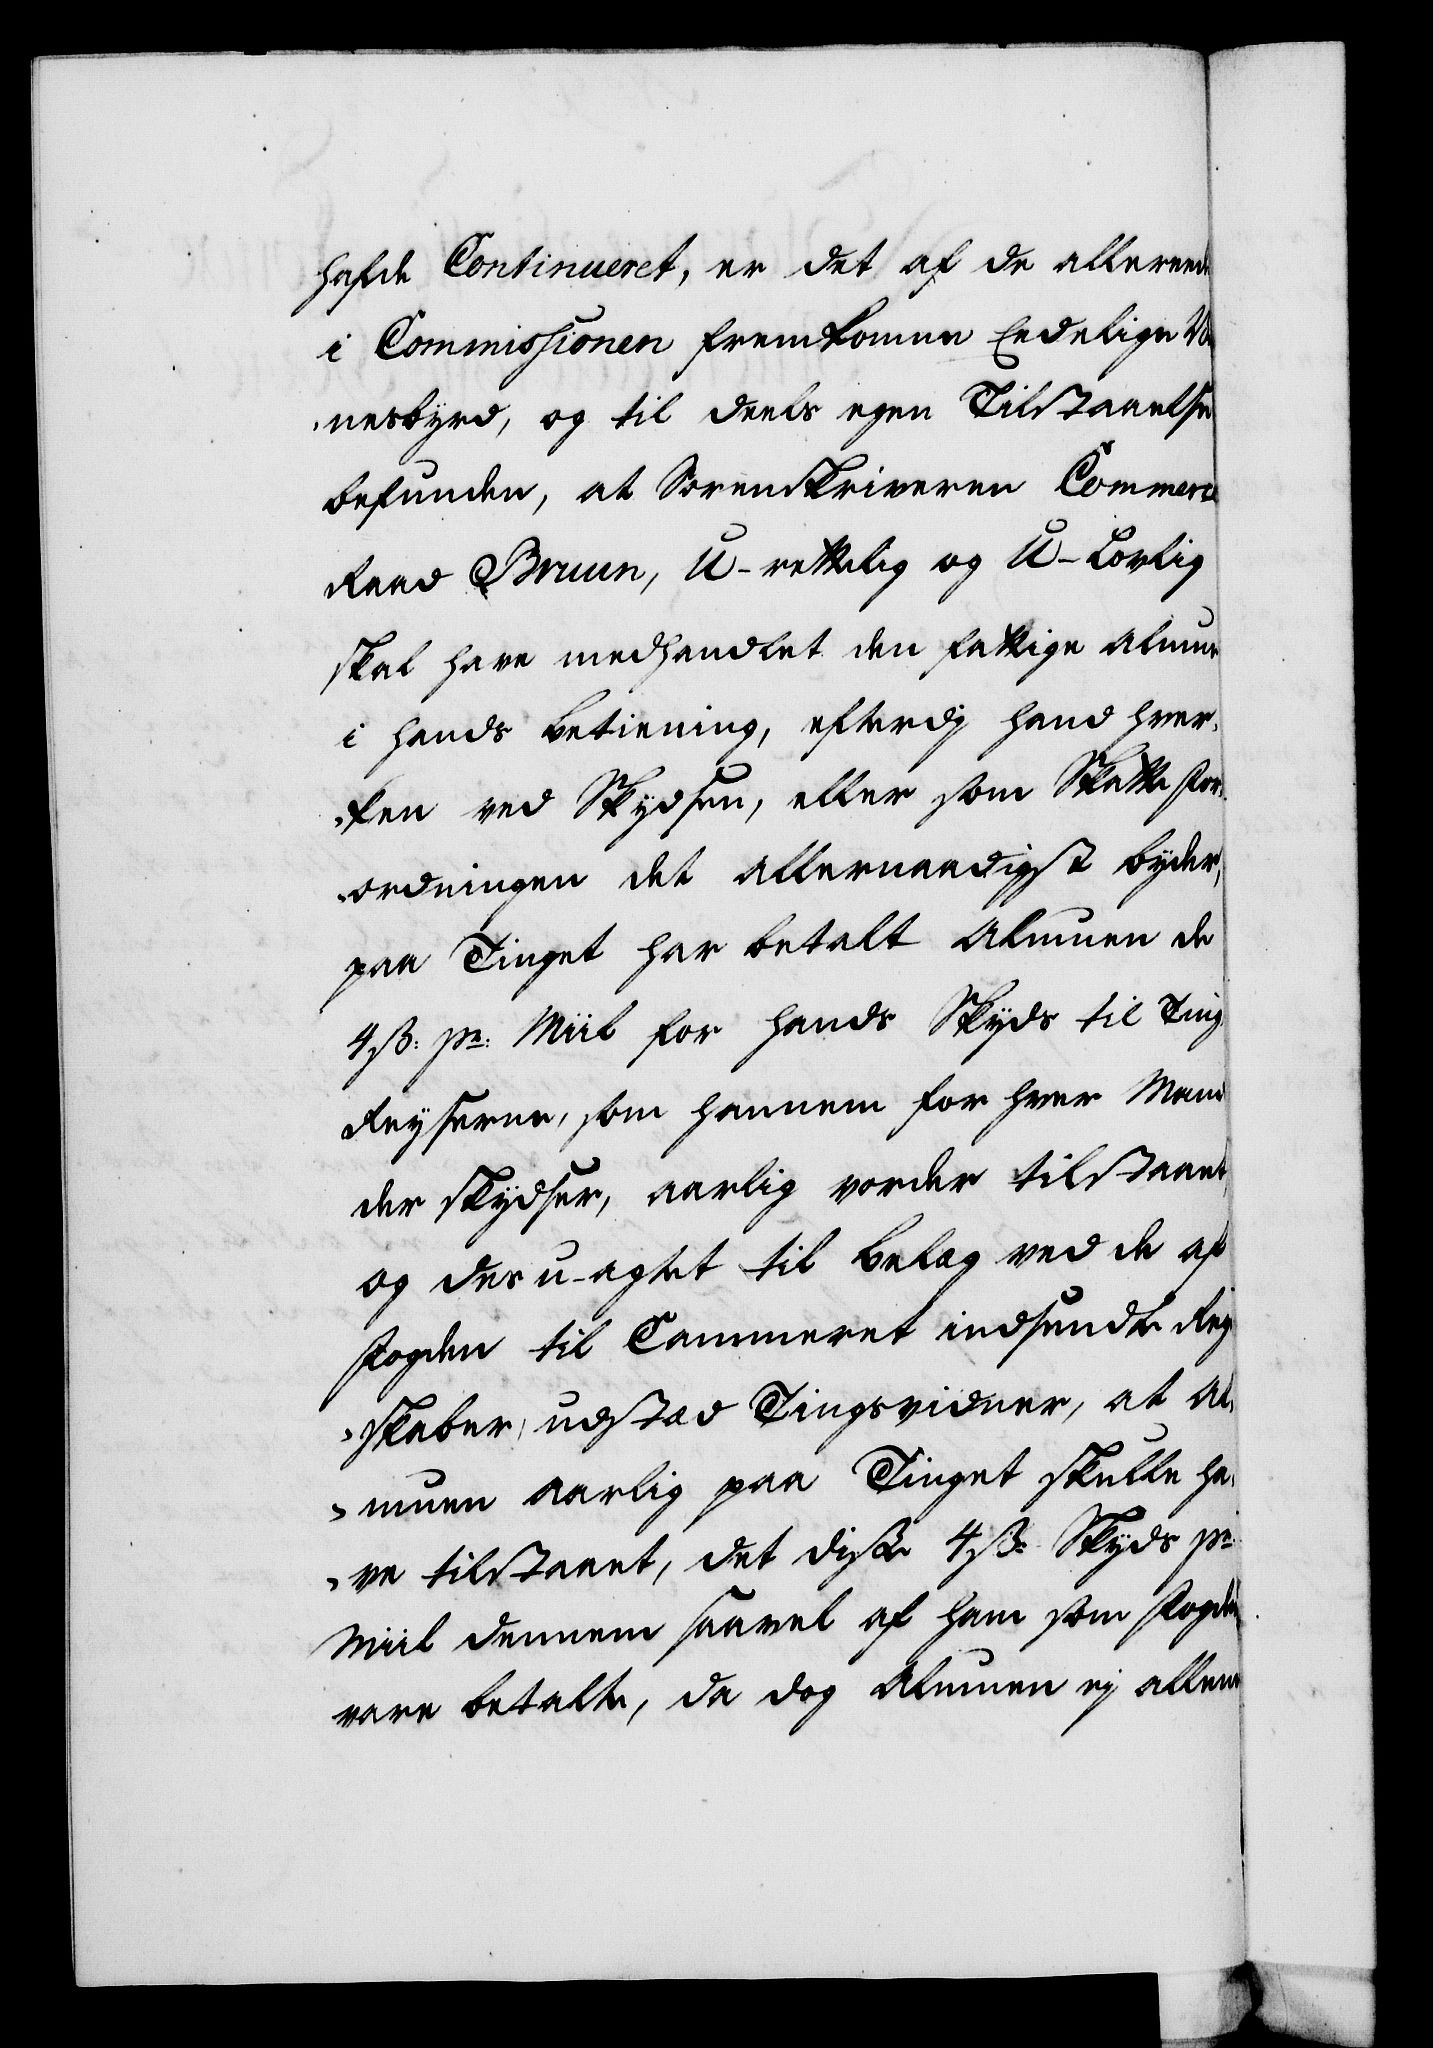 hafde Continueret, er det af de allereede
i Commissionen fremkomne Eedelige Vid
nesbyrd, og til deels egen Tilstaaelse
befunden, at Sorenskriveren Commerce
Raad Bruun, U-rettelig og U-Lovlig
skal have medhandlet den fattige Almue
i hands betiening, efterdj hand hver,
„ken ved Skydsen, eller som Skatte For,
„ordningen det allernaadigst byder,
paa Tinget har betalt Almuen de
4 ß: pr: Miil for hands Skyds til Ting
Reyserne, som hannem for hver Mand
der skydser, aarlig vorder tilstaaet,
og des u-agtet til Belæg ved de af
Fogden til Cammeret indsendte Reg
„skaber, udstæd Tingsvidner, at Al,
„muen aarlig paa Tinget skulle ha,
„ve tilstaaet, det disse 4 ß: Skyds pr:
Miil dennem saavel af ham som Fogden
vare betalte, da dog Almuen ej allene